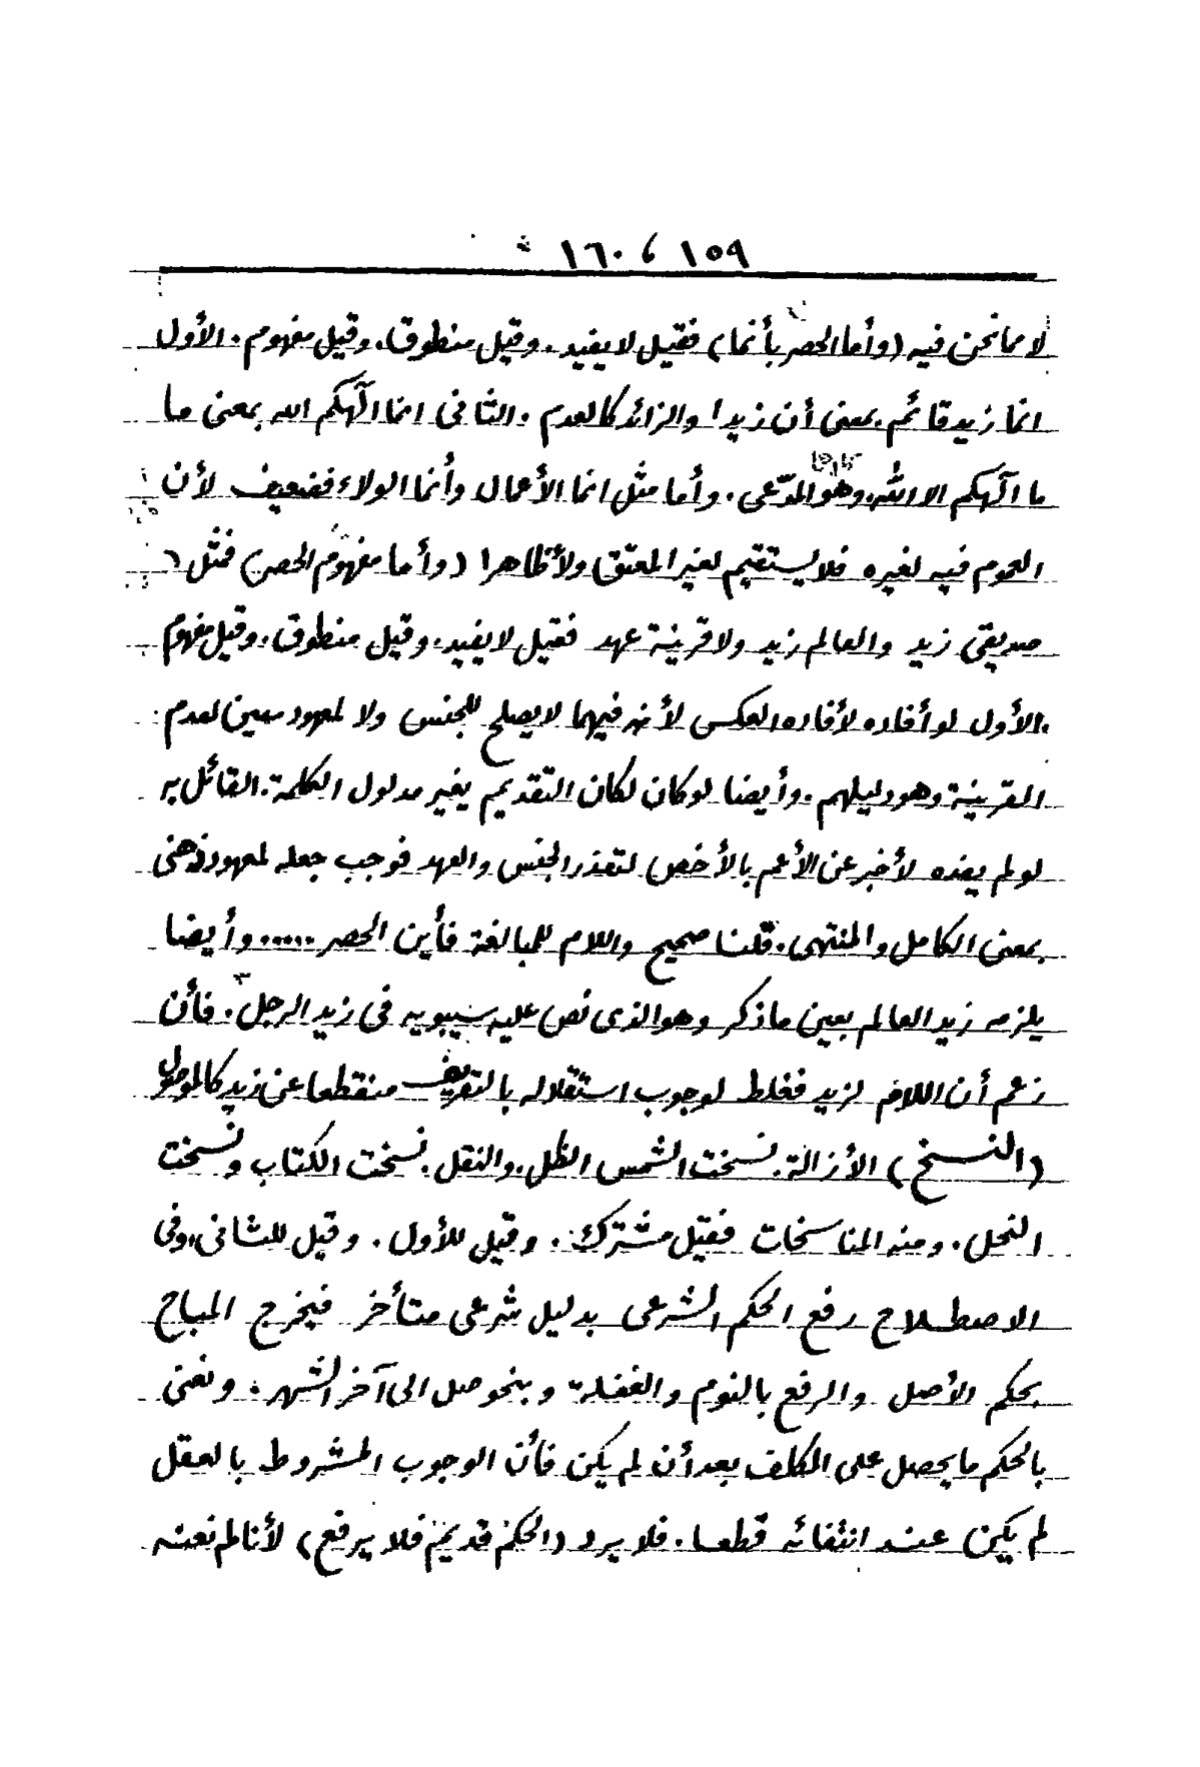 ١٥٩ ، ١٦٠
لا مما نحن فيه (وأما الحصر بأنما) فقيل لا يفيد. وقيل منطوق. وقيل مفهوم. الأول
انما زيد قائم بمعنى أن زيدا والزائد كالعدم. الثانى انما الٓهكم الله بمعنى ما
ما الٓهكم الا الله. وهو المدّعى. وأما مثل انما الأعمال وأنما الولاء فضعيف لأن
العموم فيه لغيره فلا يستقيم لغير المعتق ولاء ظاهرا (وأما مفهوم الحصر) فمثل
صديقى زيد والعالم زيد ولا قرينة عهد فقيل لا يفيد. وقيل منطوق. وقيل مفهوم
.الأول لو أفاده لأفاده العكس لأنه فيهما لا يصلح للجنس ولا لمعهود معين لعدم
القرينة وهو دليلهم. وأيضا لو كان لكان التقديم يغير مدلول الكلمة. القائل به
لو لم يفده لأخبر عن الأعم بالأخص لتعذر الجنس والعهد فوجب جعله لمعهود ذهنى
بمعنى الكامل والمنتهى. قلنا صحيح واللام للمبالغة فأين الحصر ..... وأيضا
يلزمه زيد العالم بعين ما ذكر وهو الذى نص عليه سيبويه فى زيد الرجل. فأن
زعم أن اللام لزيد فغلط لوجوب استقلاله بالتعريف منقطعا عن زيد كالموصول
(النسخ) الأزالة. نسخت الشمس الظل. والنقل. نسخت الكتاب ونسخت
النحل. ومنه المناسخات فقيل مشترك. وقيل للأول. وقيل للثانى، وفى
الاصطلاح رفع الحكم الشرعى بدليل شرعى متأخر فيخرج المباح
بحكم الأصل والرفع بالنوم والغفلة وبنحو صل الى آخر الشهر. ونعنى
بالحكم ما يحصل على المكلف بعد أن لم يكن فأن الوجوب المشروط بالعقل
لم يكن عند انتفائه قطعا. فلا يرد (الحكم قديم فلا يرفع) لأنا لم نعنه